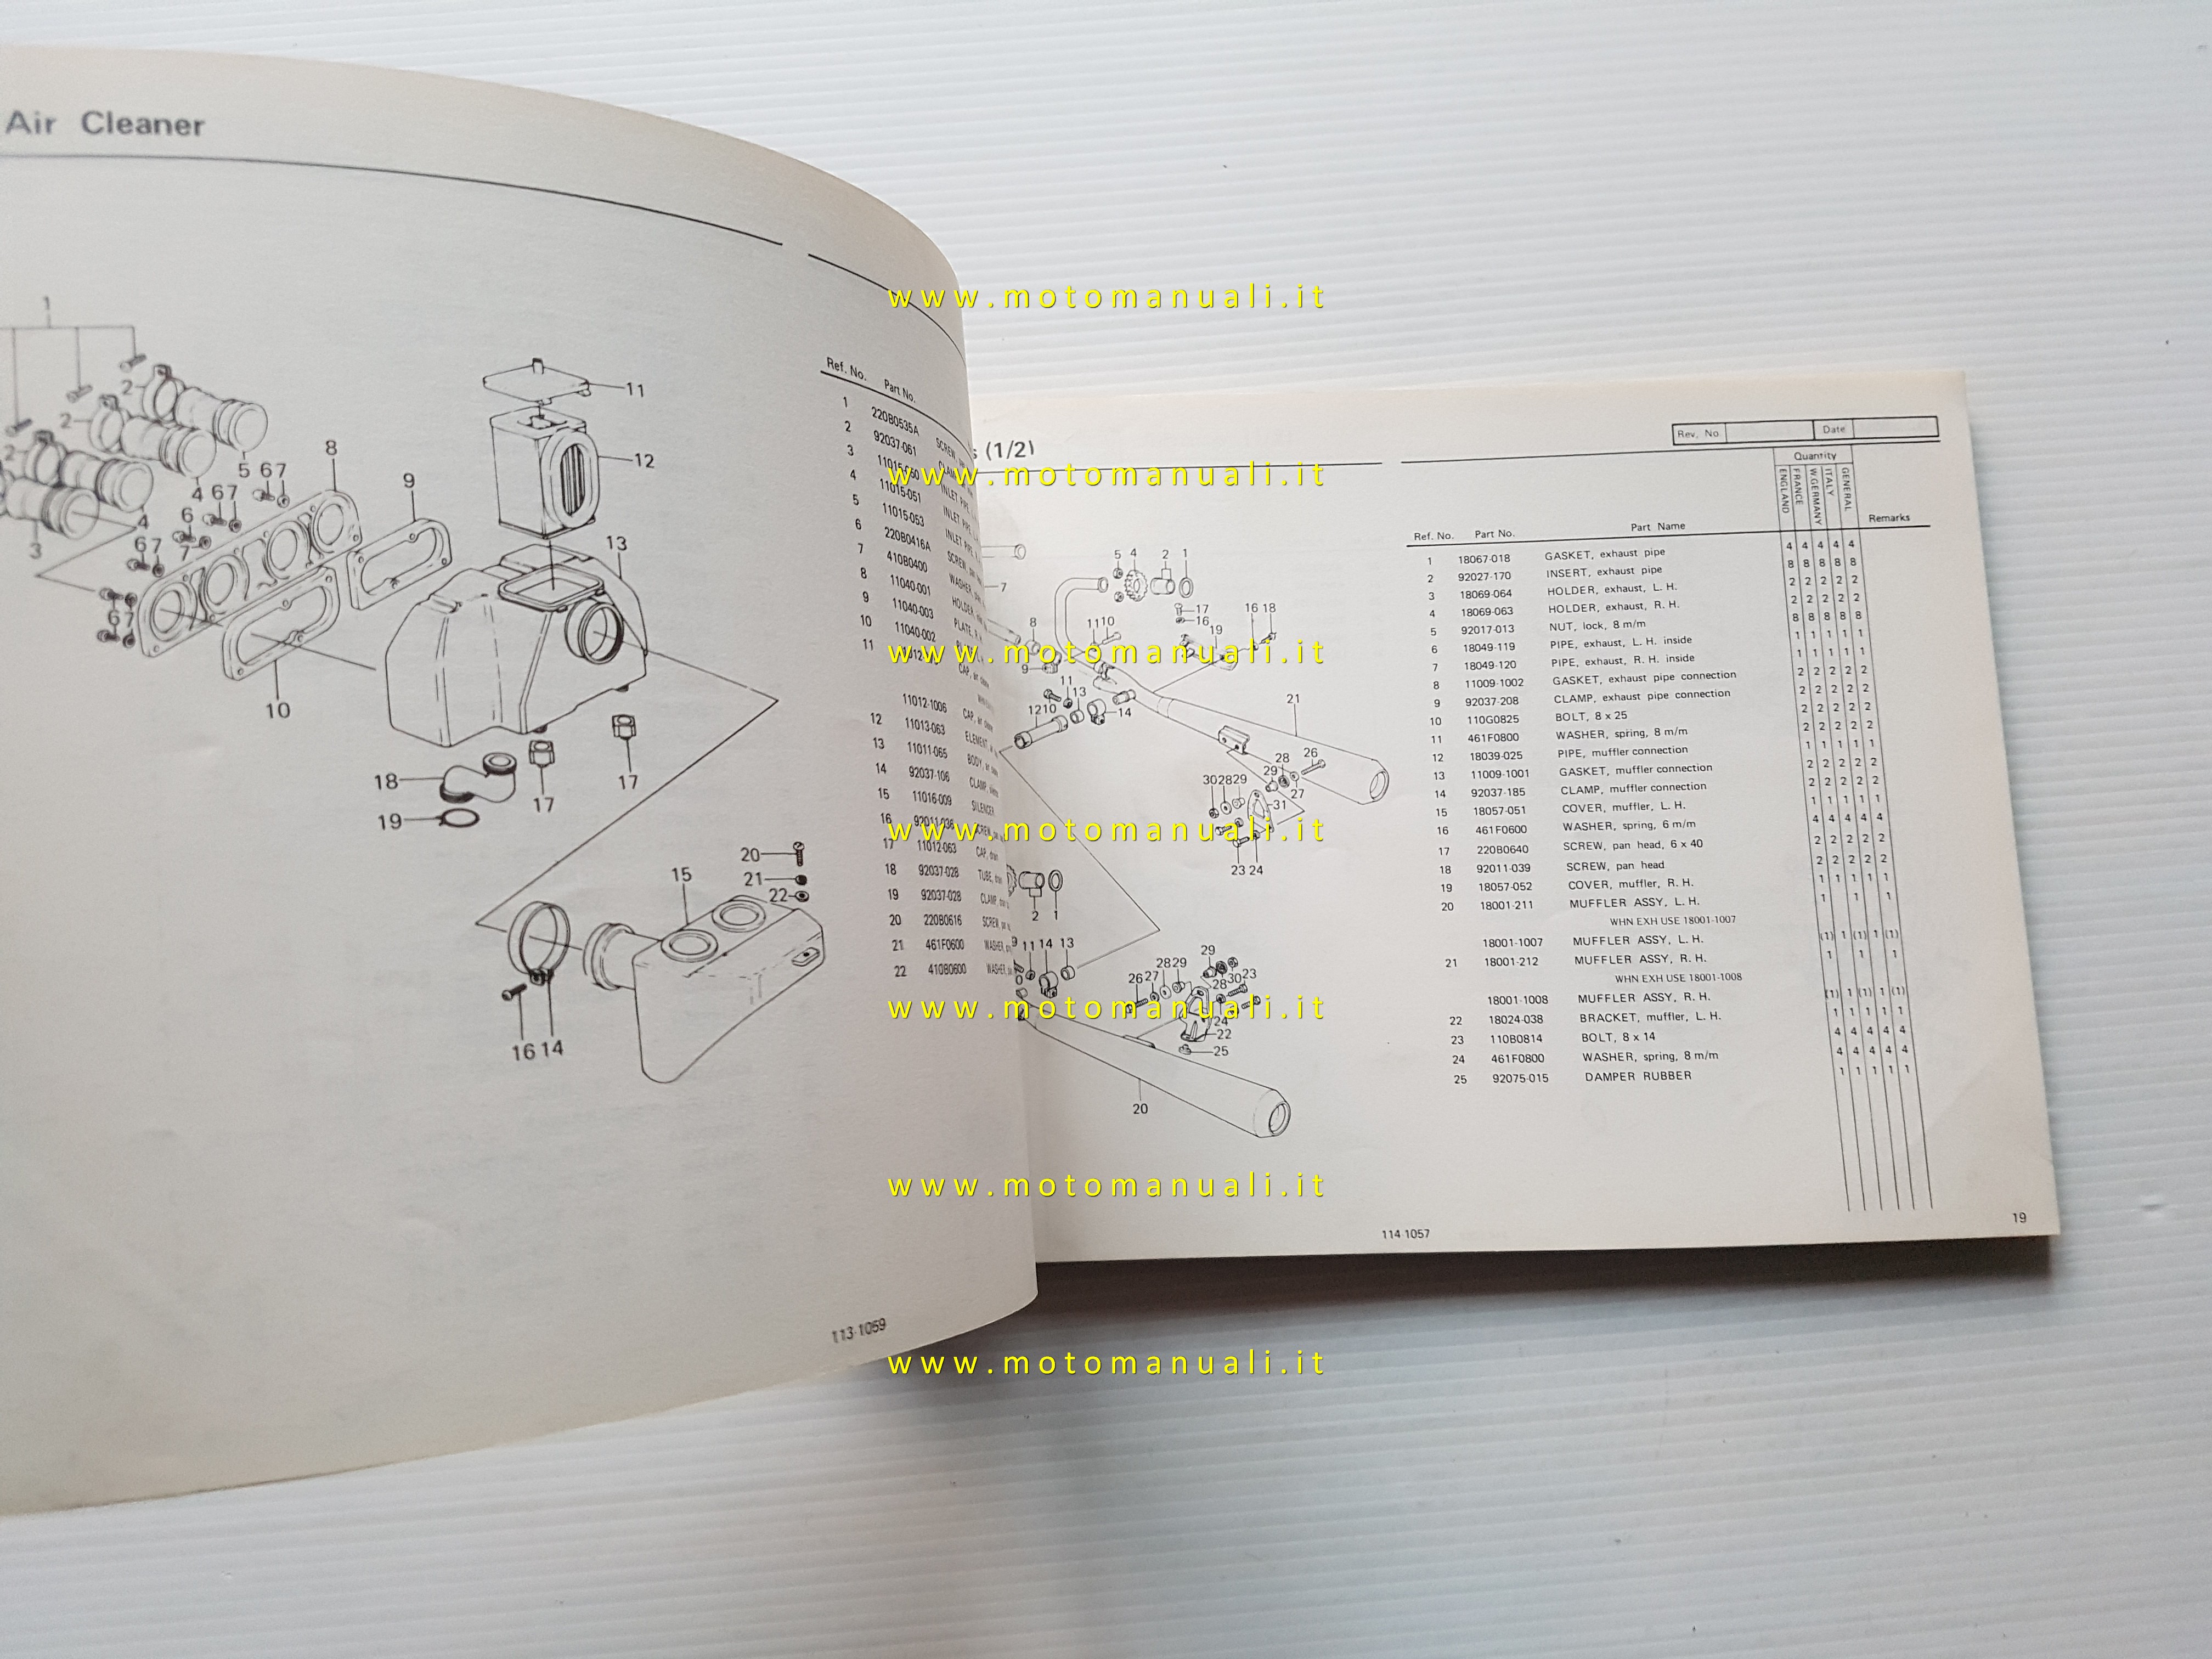 Air Cleaner
1
2
2
2
3
4
4
5
6 7
6 7
6
7
6 7
6 7
8
9
10
11
12
13
14
15
16
17
17
18
19
20
21
22
113-1059
Ref. No. Part No.
1 220B0535A SCREW,
2 92037-061
3 11015-050 INLET PIPE,
4 11015-051 INLET PIPE,
5 11015-053 INLET PIPE,
6 220B0416A SCREW,
7 410B0400 WASHER,
8 11040-001 HOLDER,
9 11040-003 PLATE,
10 11040-002
11
CAP,
11012-1006 CAP,
12 11013-063 ELEMENT,
13 11011-065 BODY,
14 92037-106 CLAMP,
15 11016-009 SILENCER
16 92011-036 SCREW,
17 11012-063 CAP,
18 92037-028 TUBE,
19 92037-028 CLAMP,
20 220B0616 SCREW,
21 461F0600 WASHER,
22 410B0600 WASHER,
(1/2)
Rev. No. Date
Quantity
ENGLAND FRANCE W.GERMANY ITALY GENERAL
Ref. No. Part No. Part Name Remarks
1 18067-018 GASKET, exhaust pipe 4 4 4 4 4
2 92027-170 INSERT, exhaust pipe 8 8 8 8 8
3 18069-064 HOLDER, exhaust, L. H. 2 2 2 2 2
4 18069-063 HOLDER, exhaust, R. H. 2 2 2 2 2
5 92017-013 NUT, lock, 8 m/m 8 8 8 8 8
6 18049-119 PIPE, exhaust, L. H. inside 1 1 1 1 1
7 18049-120 PIPE, exhaust, R. H. inside 1 1 1 1 1
8 11009-1002 GASKET, exhaust pipe connection 2 2 2 2 2
9 92037-208 CLAMP, exhaust pipe connection 2 2 2 2 2
10 110G0825 BOLT, 8 x 25 2 2 2 2 2
11 461F0800 WASHER, spring, 8 m/m 2 2 2 2 2
12 18039-025 PIPE, muffler connection 1 1 1 1 1
13 11009-1001 GASKET, muffler connection 2 2 2 2 2
14 92037-185 CLAMP, muffler connection 2 2 2 2 2
15 18057-051 COVER, muffler, L. H. 1 1 1 1 1
16 461F0600 WASHER, spring, 6 m/m 4 4 4 4 4
17 220B0640 SCREW, pan head, 6 x 40 2 2 2 2 2
18 92011-039 SCREW, pan head 2 2 2 2 2
19 18057-052 COVER, muffler, R. H. 1 1 1 1 1
20 18001-211 MUFFLER ASSY, L. H. 1 1 1
WHN EXH USE 18001-1007
18001-1007 MUFFLER ASSY, L. H. (1) 1 (1) 1 (1)
21 18001-212 MUFFLER ASSY, R. H. 1 1 1
WHN EXH USE 18001-1008
18001-1008 MUFFLER ASSY, R. H. (1) 1 (1) 1 (1)
22 18024-038 BRACKET, muffler, L. H. 1 1 1 1 1
23 110B0814 BOLT, 8 x 14 4 4 4 4 4
24 461F0800 WASHER, spring, 8 m/m 4 4 4 4 4
25 92075-015 DAMPER RUBBER 1 1 1 1 1
5 4 2 1
7
17
16
16 18
19
8
11 10
9
11
13
12 10
14
21
26
28
29
27
30 28 29
31
23 24
2 1
11 14 13
29
28 29
26 27
30 23
28
24
22
25
20
114-1057
19
www.motomanuali.it
www.motomanuali.it
www.motomanuali.it
www.motomanuali.it
www.motomanuali.it
www.motomanuali.it
www.motomanuali.it